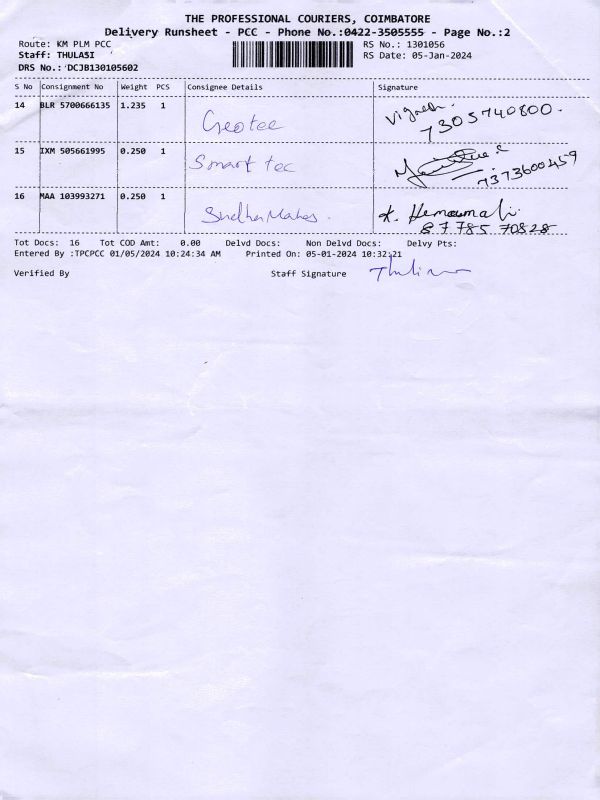 THE PROFESSIONAL COURIERS, COIMBATORE
Delivery Runsheet - PCC - Phone No.:0422-3505555 - Page No.:2
Route: KM PLM PCC RS No.: 1301056
Staff: THULASI RS Date: 05-Jan-2024
DRS No.: DCJB130105602
S No Consignment No Weight PCS Consignee Details Signature
14 BLR 5700666135 1.235 1 Geotec Vignesh. 7305740800.
15 IXM 505661995 0.250 1 Smart tec 7373600459
16 MAA 103993271 0.250 1 K. Hemamali
87785 70828
Tot Docs: 16 Tot COD Amt: 0.00 Delvd Docs: Non Delvd Docs: Delvy Pts:
Entered By :TPCPCC 01/05/2024 10:24:34 AM Printed On: 05-01-2024 10:32:21
Verified By Staff Signature